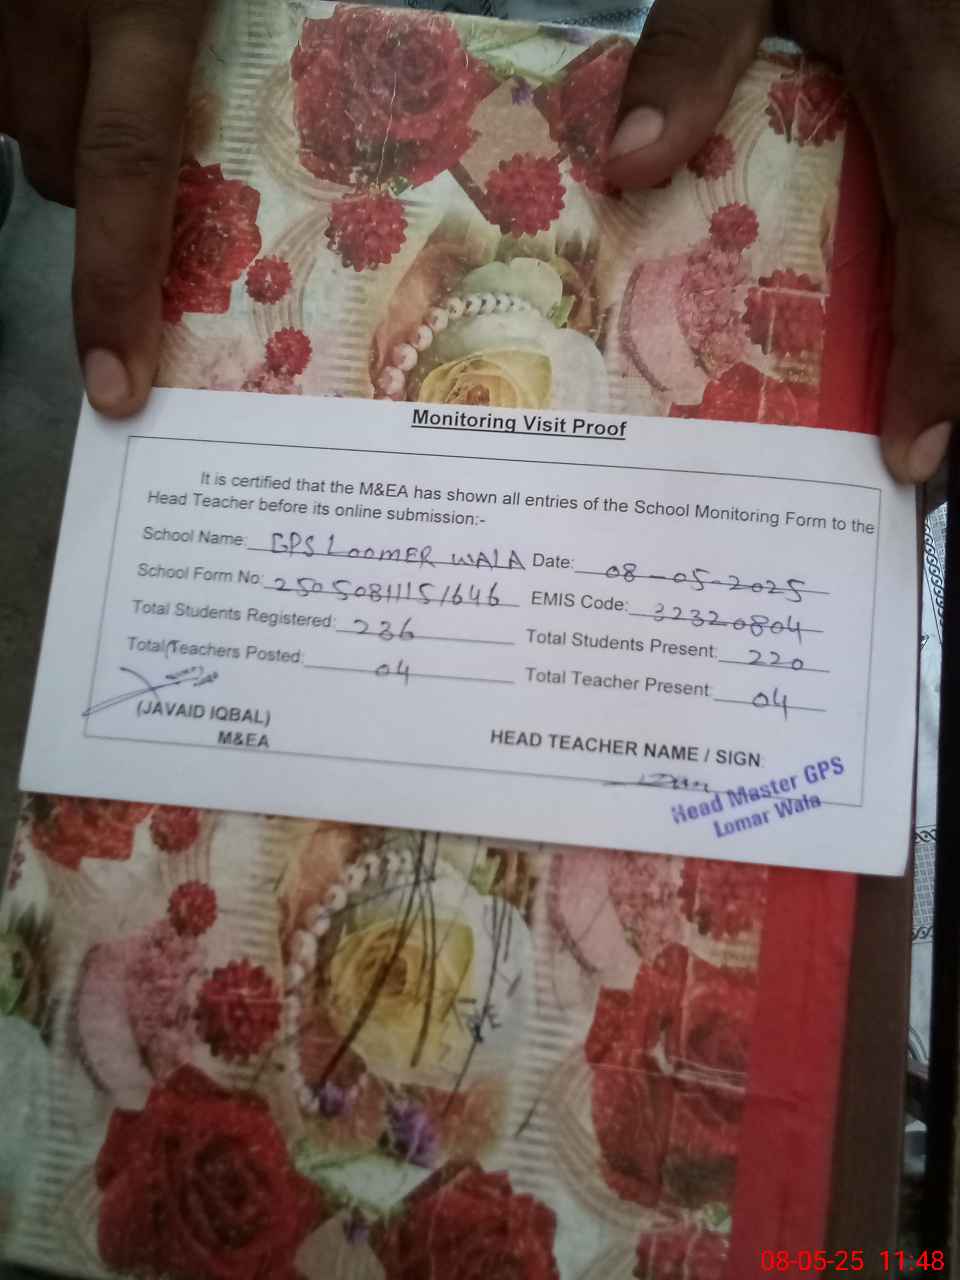 Monitoring Visit Proof
It is certified that the M&EA has shown all entries of the School Monitoring Form to the
Head Teacher before its online submission:-
School Name: GPS LOOMER WALA Date: 08-05-2025
School Form No: 25050811151646 EMIS Code: 32320804
Total Students Registered: 236 Total Students Present: 220
Total Teachers Posted: 04 Total Teacher Present: 04
(JAVAID IQBAL)
M&EA
HEAD TEACHER NAME / SIGN:
Head Master GPS
Lomar Wala
08-05-25 11:48